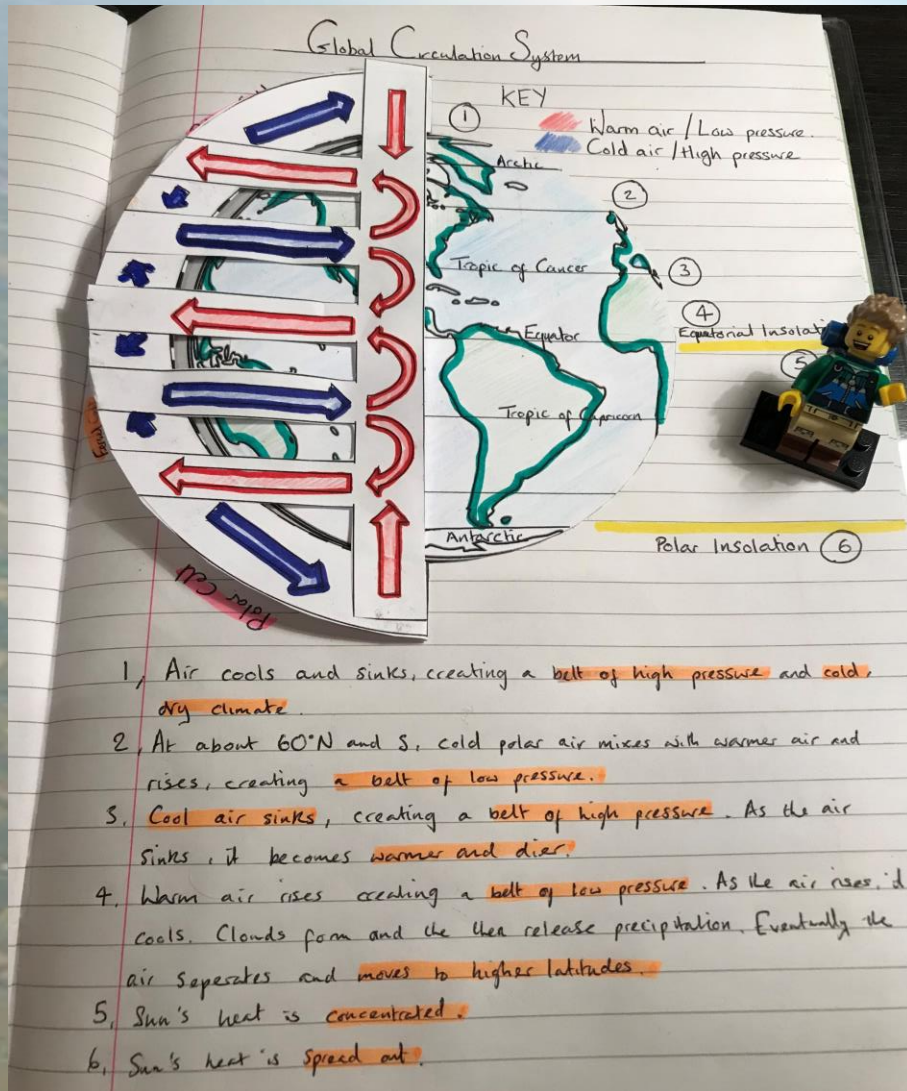 Global Circulation System
KEY
Warm air / Low pressure.
Cold air / High pressure
1
Arctic
2
Tropic of Cancer
3
4
Equator
Equatorial
5
Tropic of Capricorn
Antarctic
Polar Insolation 6
Polar Cell
1, Air cools and sinks, creating a belt of high pressure and cold,
dry climate.
2, At about 60°N and S, cold polar air mixes with warmer air and
rises, creating a belt of low pressure.
3, Cool air sinks, creating a belt of high pressure. As the air
sinks, it becomes warmer and dier.
4, Warm air rises creating a belt of low pressure. As the air rises, it
cools. Clouds form and the then release precipitation. Eventually the
air seperates and moves to higher latitudes.
5, Sun's heat is concentrated.
6, Sun's heat is spread out.